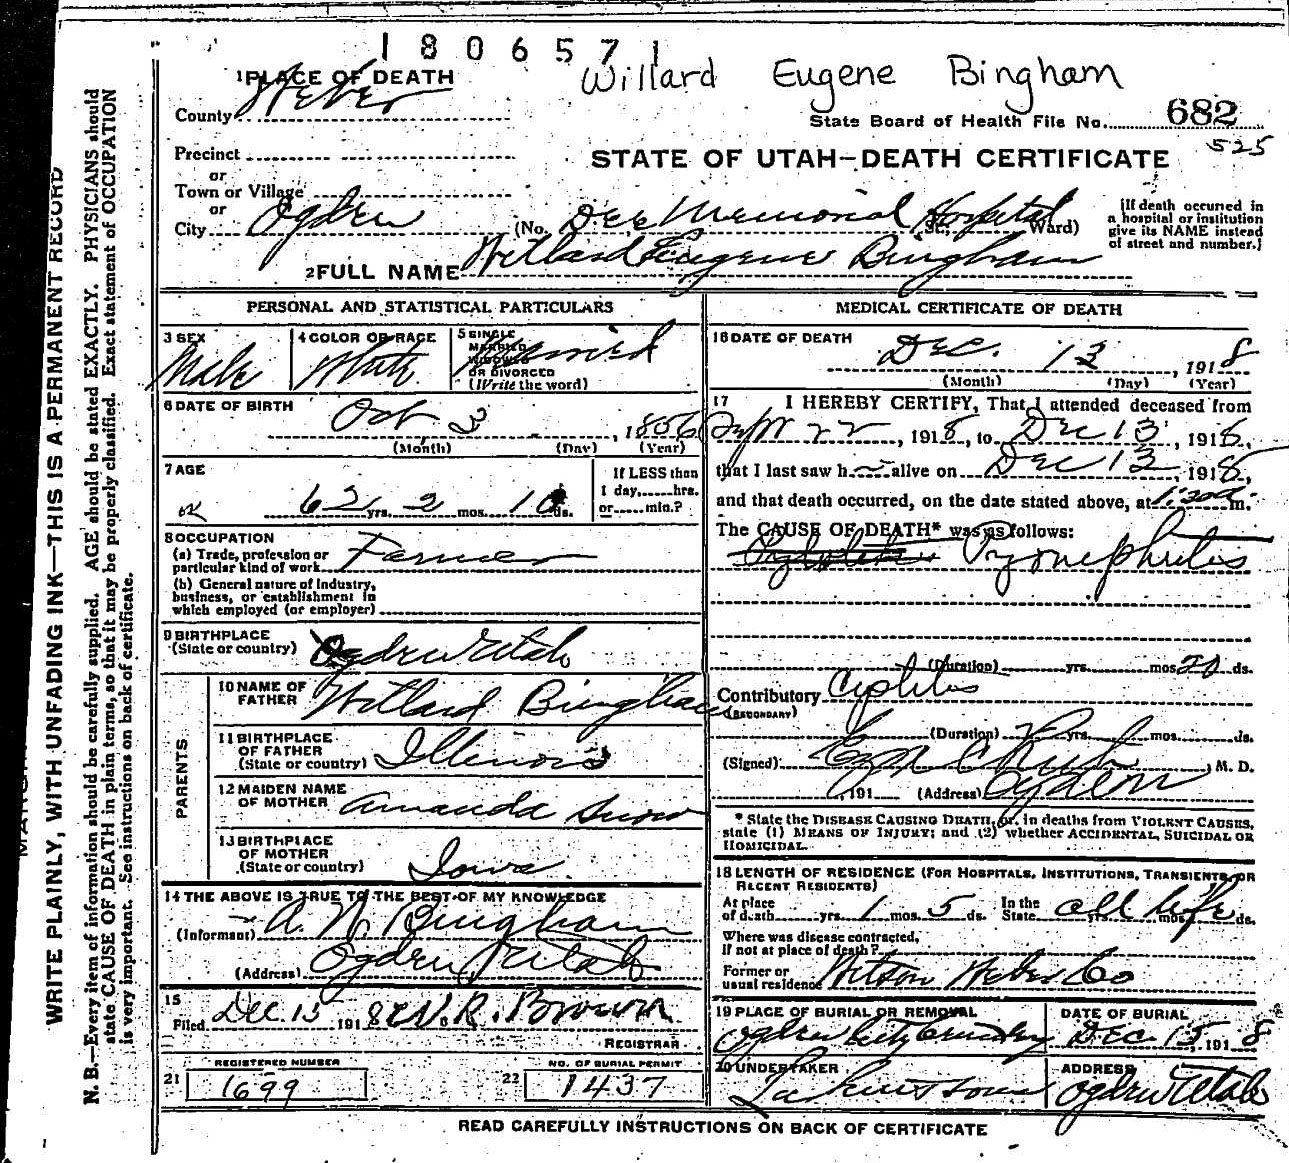 1806571
Willard Eugene Bingham
1 PLACE OF DEATH
County Weber
State Board of Health File No. 682
525
Precinct
or
STATE OF UTAH—DEATH CERTIFICATE
Town or Village
or
City Ogden (No. Dee Memorial Hospital St., Ward)
(If death occurred in a hospital or institution give its NAME instead of street and number.)
2 FULL NAME Willard Eugene Bingham
PERSONAL AND STATISTICAL PARTICULARS
3 SEX
Male
4 COLOR OR RACE
White
5 SINGLE
MARRIED
WIDOWED
OR DIVORCED
(Write the word)
Married
6 DATE OF BIRTH
Oct 3, 1856
(Month) (Day) (Year)
7 AGE
OK
62 yrs. 2 mos. 10 ds.
If LESS than
1 day,......hrs.
or......min.?
8 OCCUPATION
(a) Trade, profession or
particular kind of work Farmer
(b) General nature of Industry,
business, or establishment in
which employed (or employer)
9 BIRTHPLACE
(State or country) Ogden Utah
PARENTS
10 NAME OF
FATHER Willard Bingham
11 BIRTHPLACE
OF FATHER
(State or country) Illinois
12 MAIDEN NAME
OF MOTHER Amanda Snow
13 BIRTHPLACE
OF MOTHER
(State or country) Iowa
14 THE ABOVE IS TRUE TO THE BEST OF MY KNOWLEDGE
(Informant) A. W. Bingham
(Address) Ogden, Utah
15
Filed Dec. 15 1918 R. Brown
REGISTRAR
REGISTERED NUMBER
21 1699
NO. OF BURIAL PERMIT
22 1437
MEDICAL CERTIFICATE OF DEATH
16 DATE OF DEATH
Dec. 13, 1918
(Month) (Day) (Year)
17 I HEREBY CERTIFY, That I attended deceased from
Sept 22, 1918, to Dec 13, 1918,
that I last saw h alive on Dec 13, 1918,
and that death occurred, on the date stated above, at 1:30 a m.
The CAUSE OF DEATH* was as follows:
Pyonephritis
(Duration) yrs. mos. 20 ds.
Contributory Cystitis
(SECONDARY)
(Duration) yrs. mos. ds.
(Signed) M. D.
, 191 (Address) Ogden
* State the DISEASE CAUSING DEATH, or, in deaths from VIOLENT CAUSES,
state (1) MEANS OF INJURY; and (2) whether ACCIDENTAL, SUICIDAL OR
HOMICIDAL.
18 LENGTH OF RESIDENCE (FOR HOSPITALS, INSTITUTIONS, TRANSIENTS, OR
RECENT RESIDENTS)
At place
of death yrs. 1 mos. 5 ds. In the
State all life yrs. mos. ds.
Where was disease contracted,
if not at place of death?
Former or
usual residence Wilson Weber Co
19 PLACE OF BURIAL OR REMOVAL
Ogden City Cemetery
DATE OF BURIAL
Dec. 15, 1918
20 UNDERTAKER
ADDRESS
Ogden Utah
READ CAREFULLY INSTRUCTIONS ON BACK OF CERTIFICATE
WRITE PLAINLY, WITH UNFADING INK—THIS IS A PERMANENT RECORD
N. B.—Every item of information should be carefully supplied. AGE should be stated EXACTLY. PHYSICIANS should
state CAUSE OF DEATH in plain terms, so that it may be properly classified. Exact statement of OCCUPATION
is very important. See instructions on back of certificate.